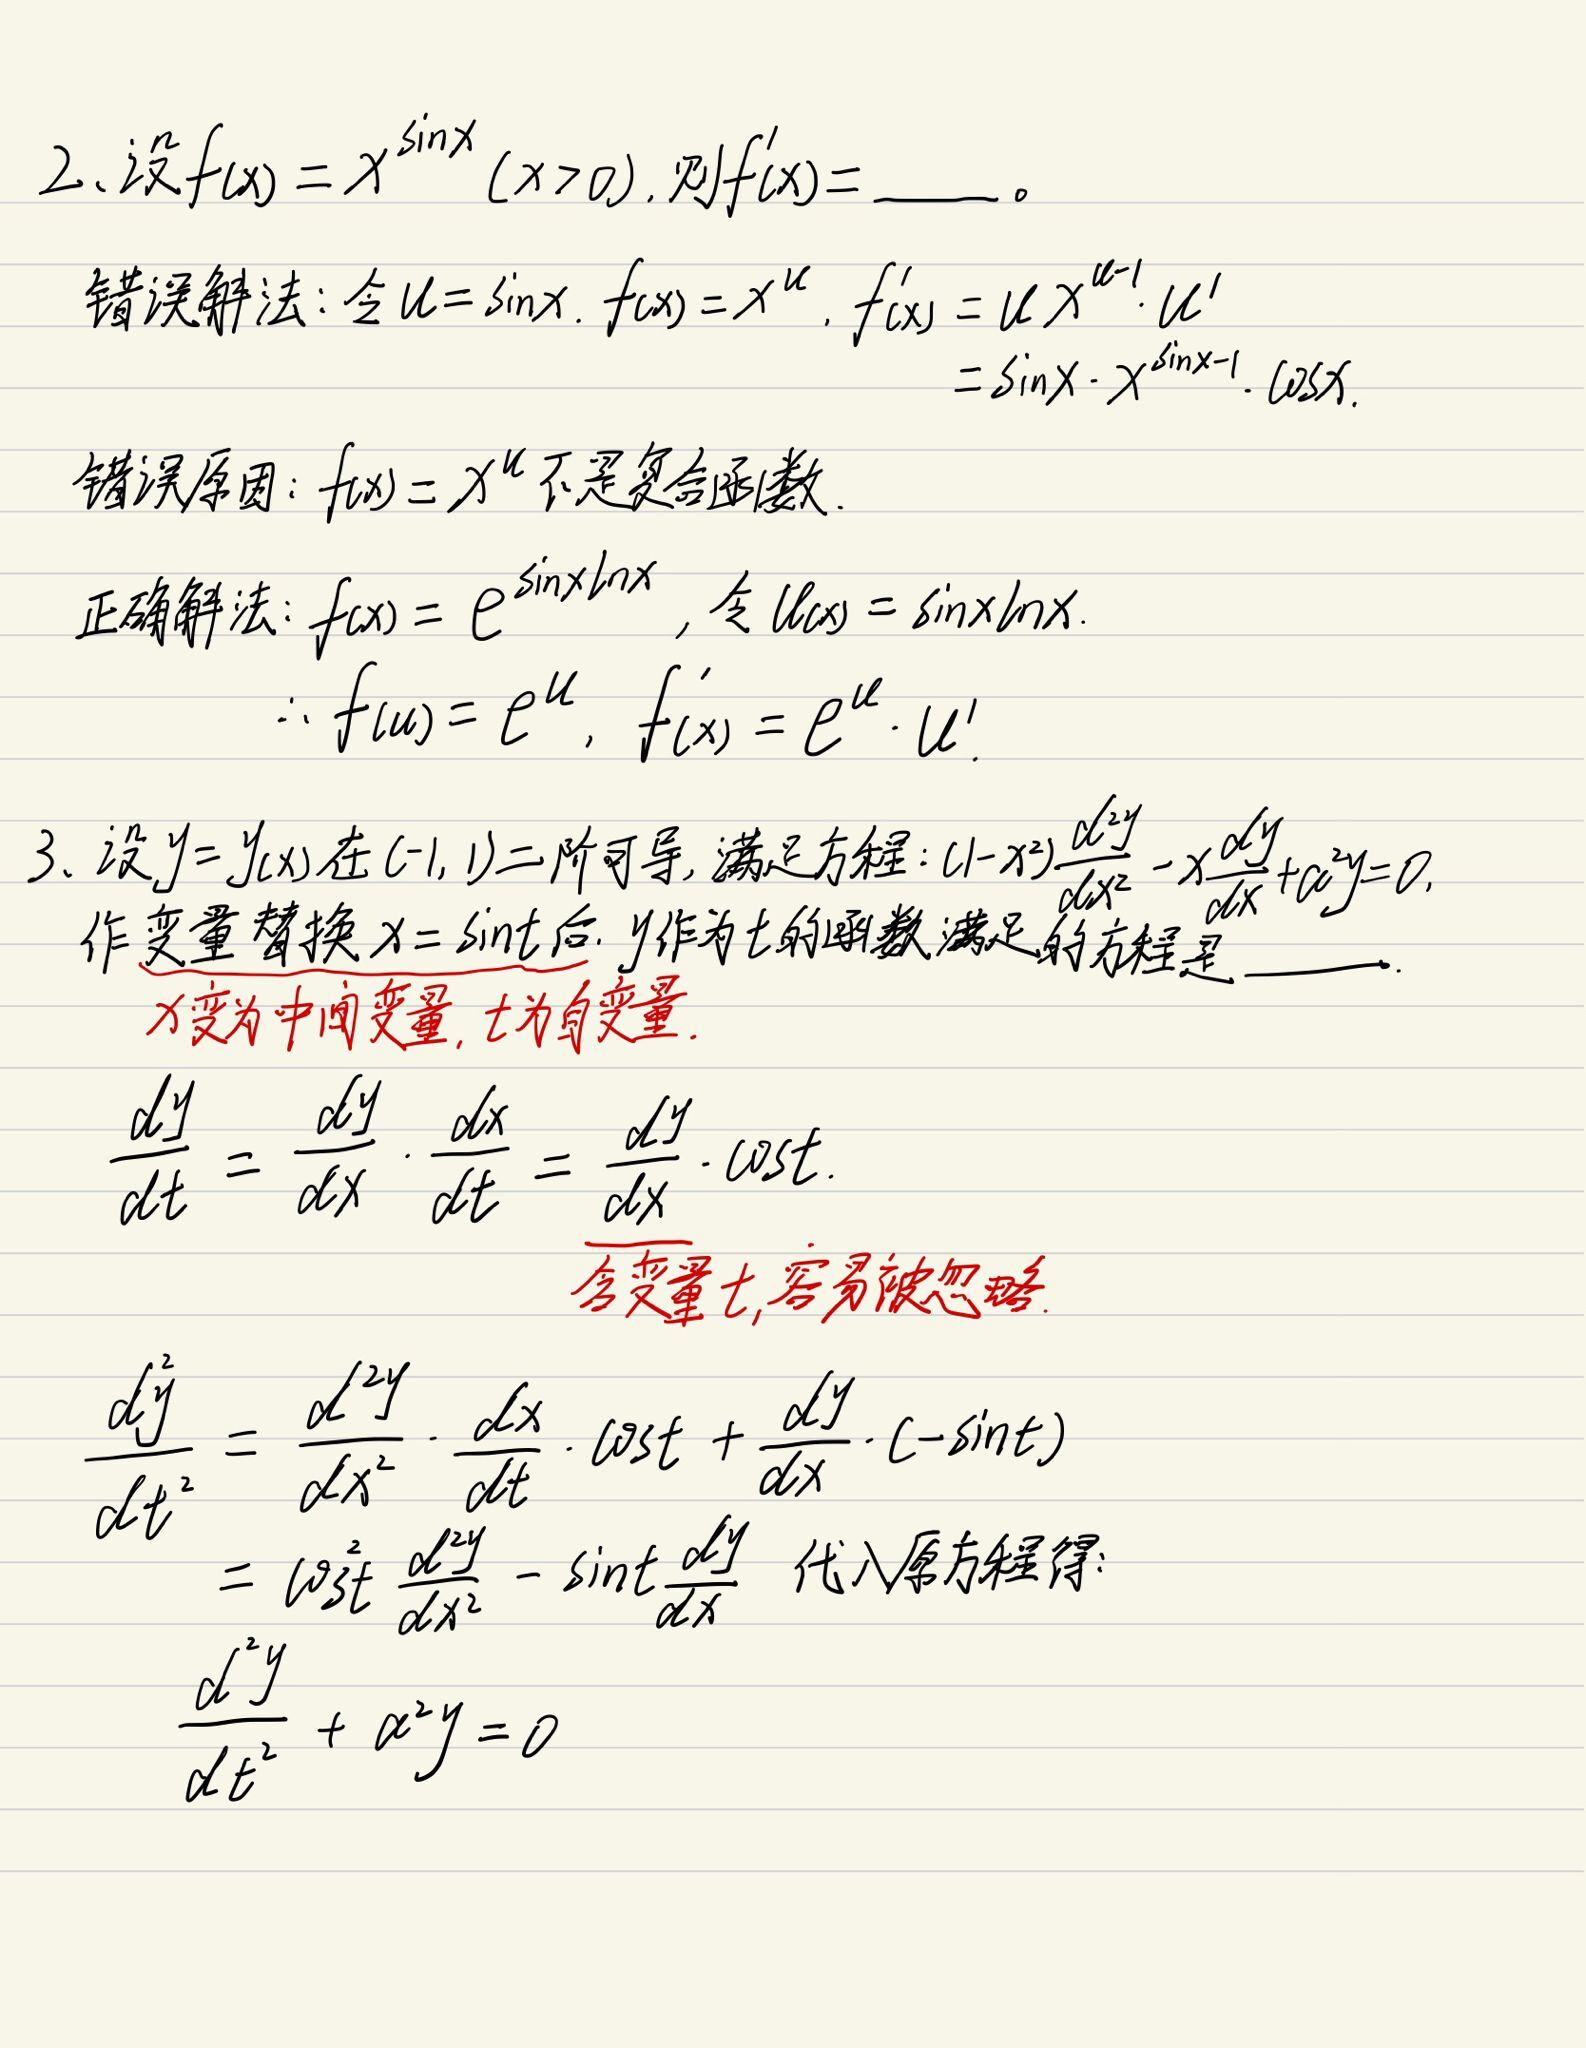 2、设f(x)=x^{sinx}(x>0),则f'(x)=____。
错误解法:令u=sinx. f(x)=x^u, f'(x)=u x^{u-1}·u'
=sinx·x^{sinx-1}·cosx.
错误原因:f(x)=x^u不是复合函数.
正确解法:f(x)=e^{sinxlnx},令u(x)=sinxlnx.
∴f(u)=e^u, f'(x)=e^u·u'.
3、设y=y(x)在(-1,1)二阶可导,满足方程:(1-x²)\frac{d²y}{dx²}-x\frac{dy}{dx}+a²y=0,
作变量替换x=sint后.y作为t的函数满足的方程是____.
x变为中间变量,t为自变量.
\frac{dy}{dt}=\frac{dy}{dx}·\frac{dx}{dt}=\frac{dy}{dx}·cost.
含变量t,容易被忽略.
\frac{dy²}{dt²}=\frac{d²y}{dx²}·\frac{dx}{dt}·cost+\frac{dy}{dx}·(-sint)
=cos²t\frac{d²y}{dx²}-sint\frac{dy}{dx} 代入原方程得:
\frac{d²y}{dt²}+a²y=0